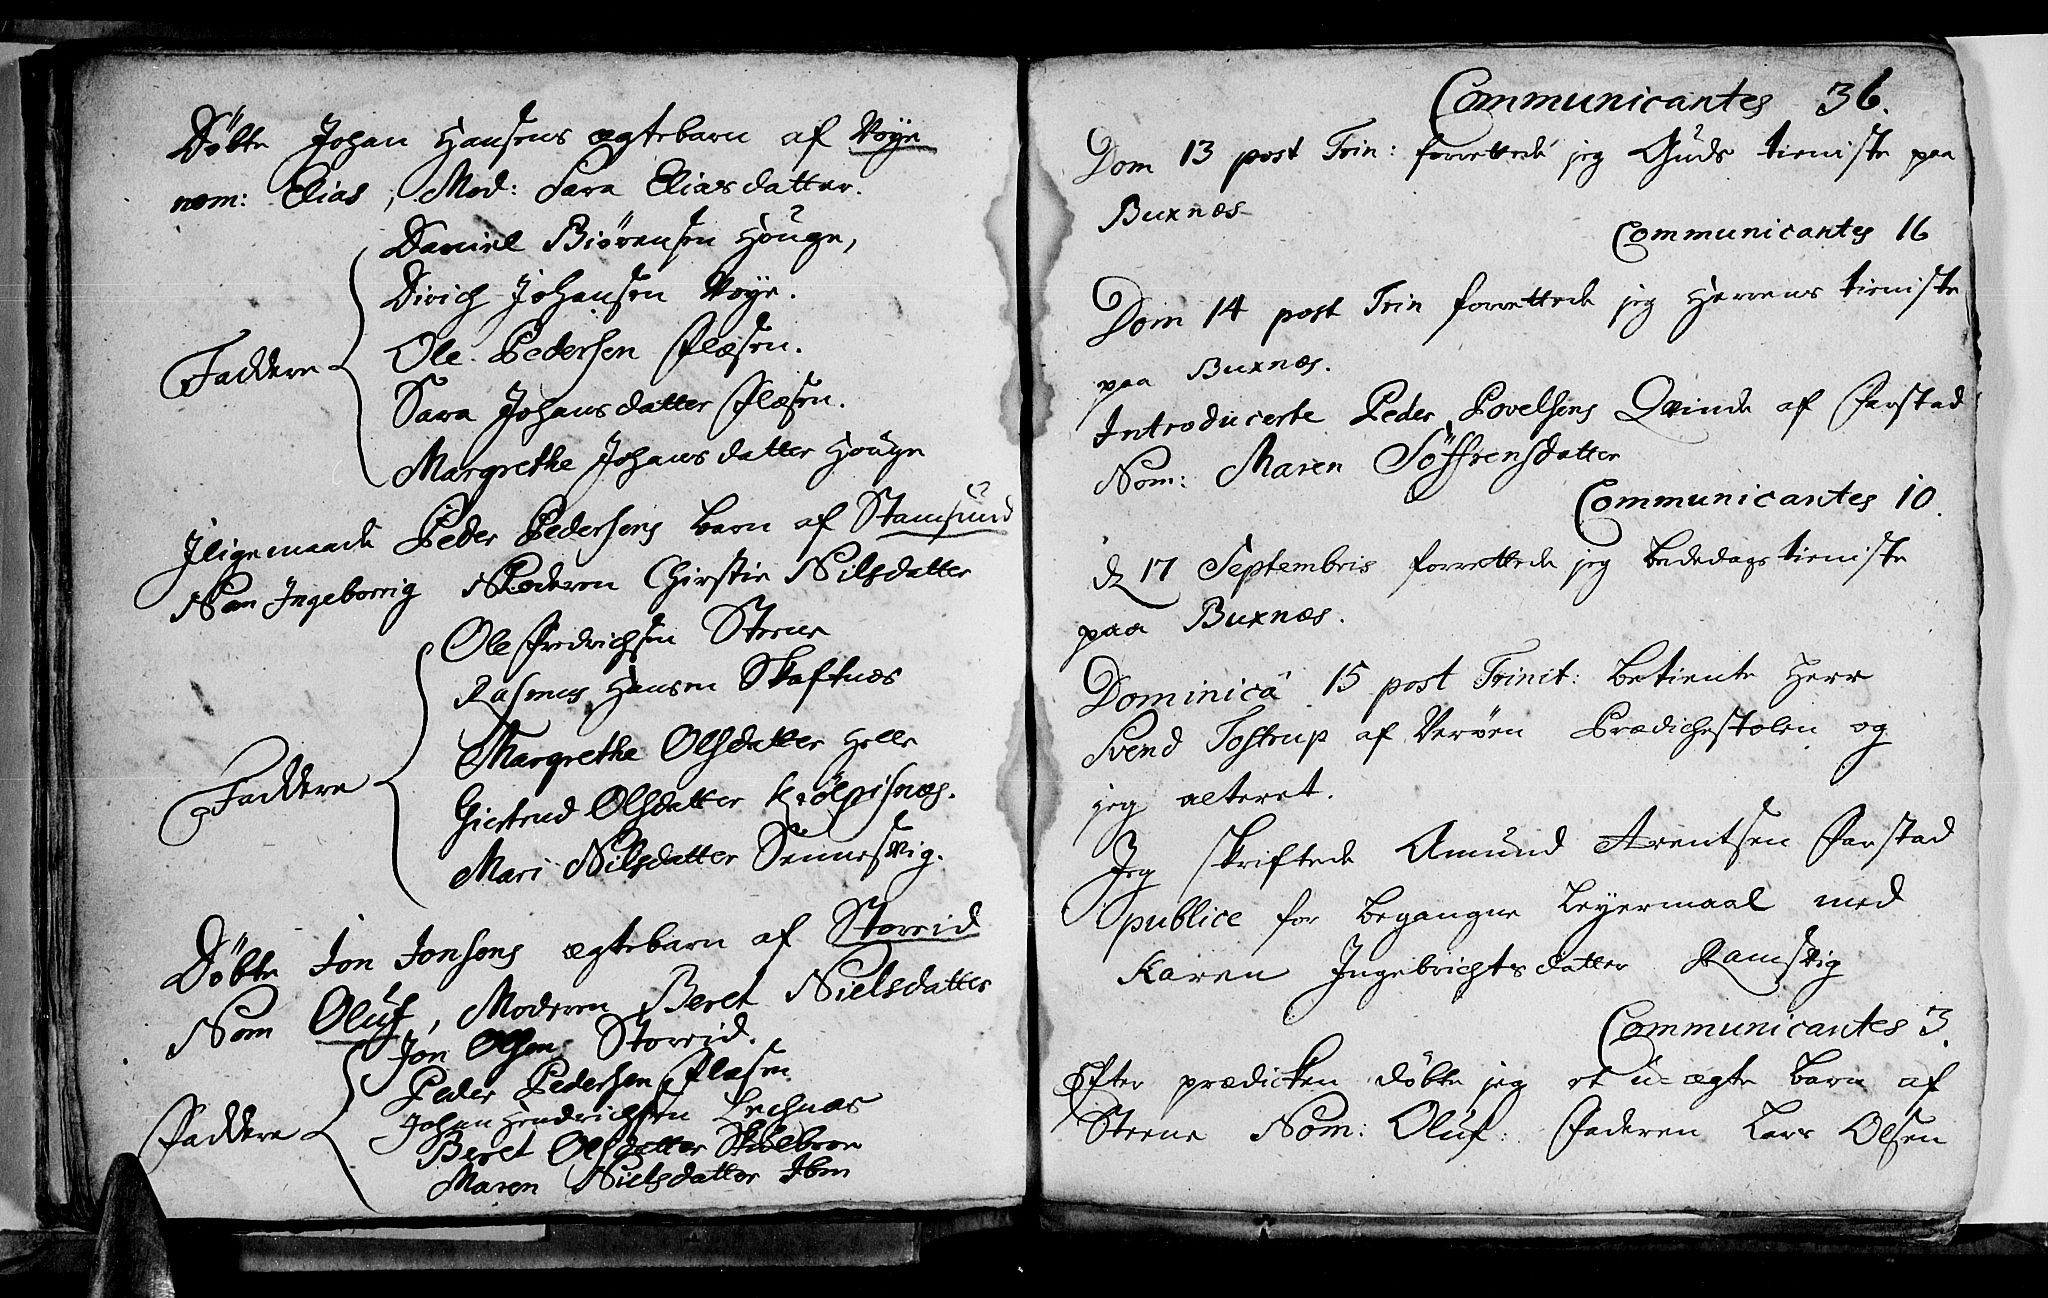 Döbte Johan Hansens ægtebarn af Voÿe
nom: Elias, Mod: Sara Elias datter.
Daniel Biörensen Houge,
Dirich Johansen Voÿe.
Faddere
Ole Pedersen Flæsen.
Sara Johans datter Flæsen.
Margrethe Johans datter Houge
Jligemaade Peder Pedersens barn af Stamsund
Nom Ingeborrig Moderen Chirstie Nilsdatter
Ole Fredrichsen Steene
Rasmus Hansen Skaftnæs
Margrethe Olsdatter Helle
Faddere
Giertrud Olsdatter Kiölpisnæs.
Mari Nilsdatter Sennesvig.
Döbte Jon Jonsens ægtebarn af Storeid
Nom Oluf, Moderen Beret Nielsdatter
Jon Olsen Storeid.
Peder Pedersen Flæsen.
Johan Hendrichsen Lechnæs
Faddere
Beret Olsdatter Skulbroe
Maren Nielsdatter Ibm
Communicantes 36.
Dom 13 post Trin: forrettede jeg Guds tieniste paa
Buxnæs
Communicantes 16
Dom 14 post Trin forrettede jeg Herrens tieniste
paa Buxnæs.
Introducerte Peder Povelsens Qvinde af Farstad
Nom: Maren Söffrensdatter
Communicantes 10.
d 17 Septembris forrettede jeg bededags tieniste
paa Buxnæs.
Dominica 15 post Trinit: betiente Herr
Svend Tostrup af Verøen Prædichestolen og
jeg alteret.
Jeg skriftede Amund Arentsen Farstad
publice for begangne Leyermaal med
Karen Ingebrichts datter Ramsvig
Communicantes 3.
Efter prædicken döbte jeg et u-ægte barn af
Steene Nom: Oluf: Faderen Lars Olsen